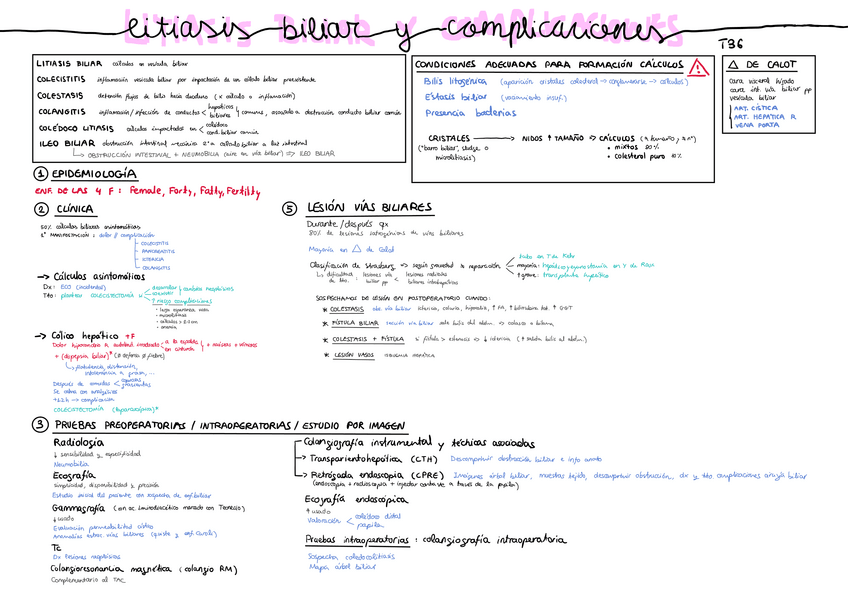 Litiasis biliar y complicaciones
T36
LITIASIS BILIAR cálculos en vesícula biliar
COLECISTITIS inflamación vesícula biliar por impactación de un cálculo biliar preexistente
COLESTASIS detención flujo de bilis hacia duodeno (x cálculo o inflamación)
COLANGITIS inflamación/infección de conductos < hepáticos biliares comunes, asociado a obstrucción conducto biliar común
COLÉDOCO LITIASIS cálculos impactados en < colédoco cond. biliar común
ILEO BILIAR obstrucción intestinal mecánica 2ª a cálculo biliar a luz intestinal
OBSTRUCCIÓN INTESTINAL + NEUMOBILIA (aire en vía biliar) => ILEO BILIAR
CONDICIONES ADECUADAS PARA FORMACIÓN CÁLCULOS
Bilis litogénica (aparición cristales colesterol → conglomerarse → cálculos)
Éstasis biliar (vaciamiento insuf.)
Presencia bacterias
CRISTALES → NIDOS ↑ TAMAÑO => CÁLCULOS
("barro biliar", sludge o microlitiasis)
• mixtos 80%
• colesterol puro 10%
△ DE CALOT
cara visceral hígado
cara int. vía biliar pp
vesícula biliar
ART. CÍSTICA
ART. HEPÁTICA R
VENA PORTA
1 EPIDEMIOLOGÍA
ENF. DE LAS 4 F: Female, Forty, Fatty, Fertility
2 CLÍNICA
50% cálculos biliares asintomáticos
1ª MANIFESTACIÓN: dolor o complicación
COLECISTITIS
PANCREATITIS
ICTERICIA
COLANGITIS
→ Cálculos asintomáticos
Dx: ECO (incidental)
Tto: plantear COLECISTECTOMÍA si
↑ riesgo complicaciones
→ Cólico hepático +F
Dolor hipocondrio R
a la espalda
en cinturón
+ náuseas + vómitos
+ (dispepsia biliar)*
Después de comidas < copiosas grasientas
Se calma con analgésicos
+12h → complicación
COLECISTECTOMÍA (laparoscópica)*
5 LESIÓN VÍAS BILIARES
Durante/después qx
80% de lesiones iatrogénicas de vías biliares
Mayoría en △ de Calot
Clasificación de Strasberg => según gravedad y reparación
tubo en T de Kehr
mayoría: hepaticoyeyunostomía en Y de Roux
↑ grave: transplante hepático
SOSPECHAMOS DE LESIÓN EN POSTOPERATORIO CUANDO:
* COLESTASIS obs vía biliar ictericia, coluria, hipocolia, ↑ FA, ↑ bilirrubina tot. ↑ GGT
* FÍSTULA BILIAR sección vía biliar sale bilis del abdom. => coleaso o bilioma
* COLESTASIS + FÍSTULA si fístula > estenosis => ↓ ictericia (↑ salida bilis al abdom.)
* LESIÓN VASOS isquemia hepática
3 PRUEBAS PREOPERATORIAS / INTRAOPERATORIAS / ESTUDIO POR IMAGEN
Radiología
↓ sensibilidad y especificidad
Neumobilia
Ecografía
simplicidad, disponibilidad y precisión
Estudio inicial del paciente con sospecha de enf. biliar
Gammagrafía (con ac. iminodiacético marcado con Tecnecio)
↓ usado
Evaluación permeabilidad cístico
Anomalías estruc. vías biliares (quiste y enf. Caroli)
TC
Dx lesiones neoplásicas
Colangioresonancia magnética (colangio RM)
Complementario al TAC
Colangiografía instrumental y técnicas asociadas
→ Transparietohepática (CTH) Descomprimir obstrucción biliar e info anato
→ Retrógada endoscopia (CPRE) Imágenes árbol biliar, muestras tejido, descomprimir obstrucción, dx y tto complicaciones cirugía biliar
(endoscopia + radioscopia + inyectar contraste a través de la papila)
Ecografía endoscópica
↑ usado
Valoración < colédoco distal papila
Pruebas intraoperatorias: colangiografía intraoperatoria
Sospecha coledocolitiasis
Mapa árbol biliar